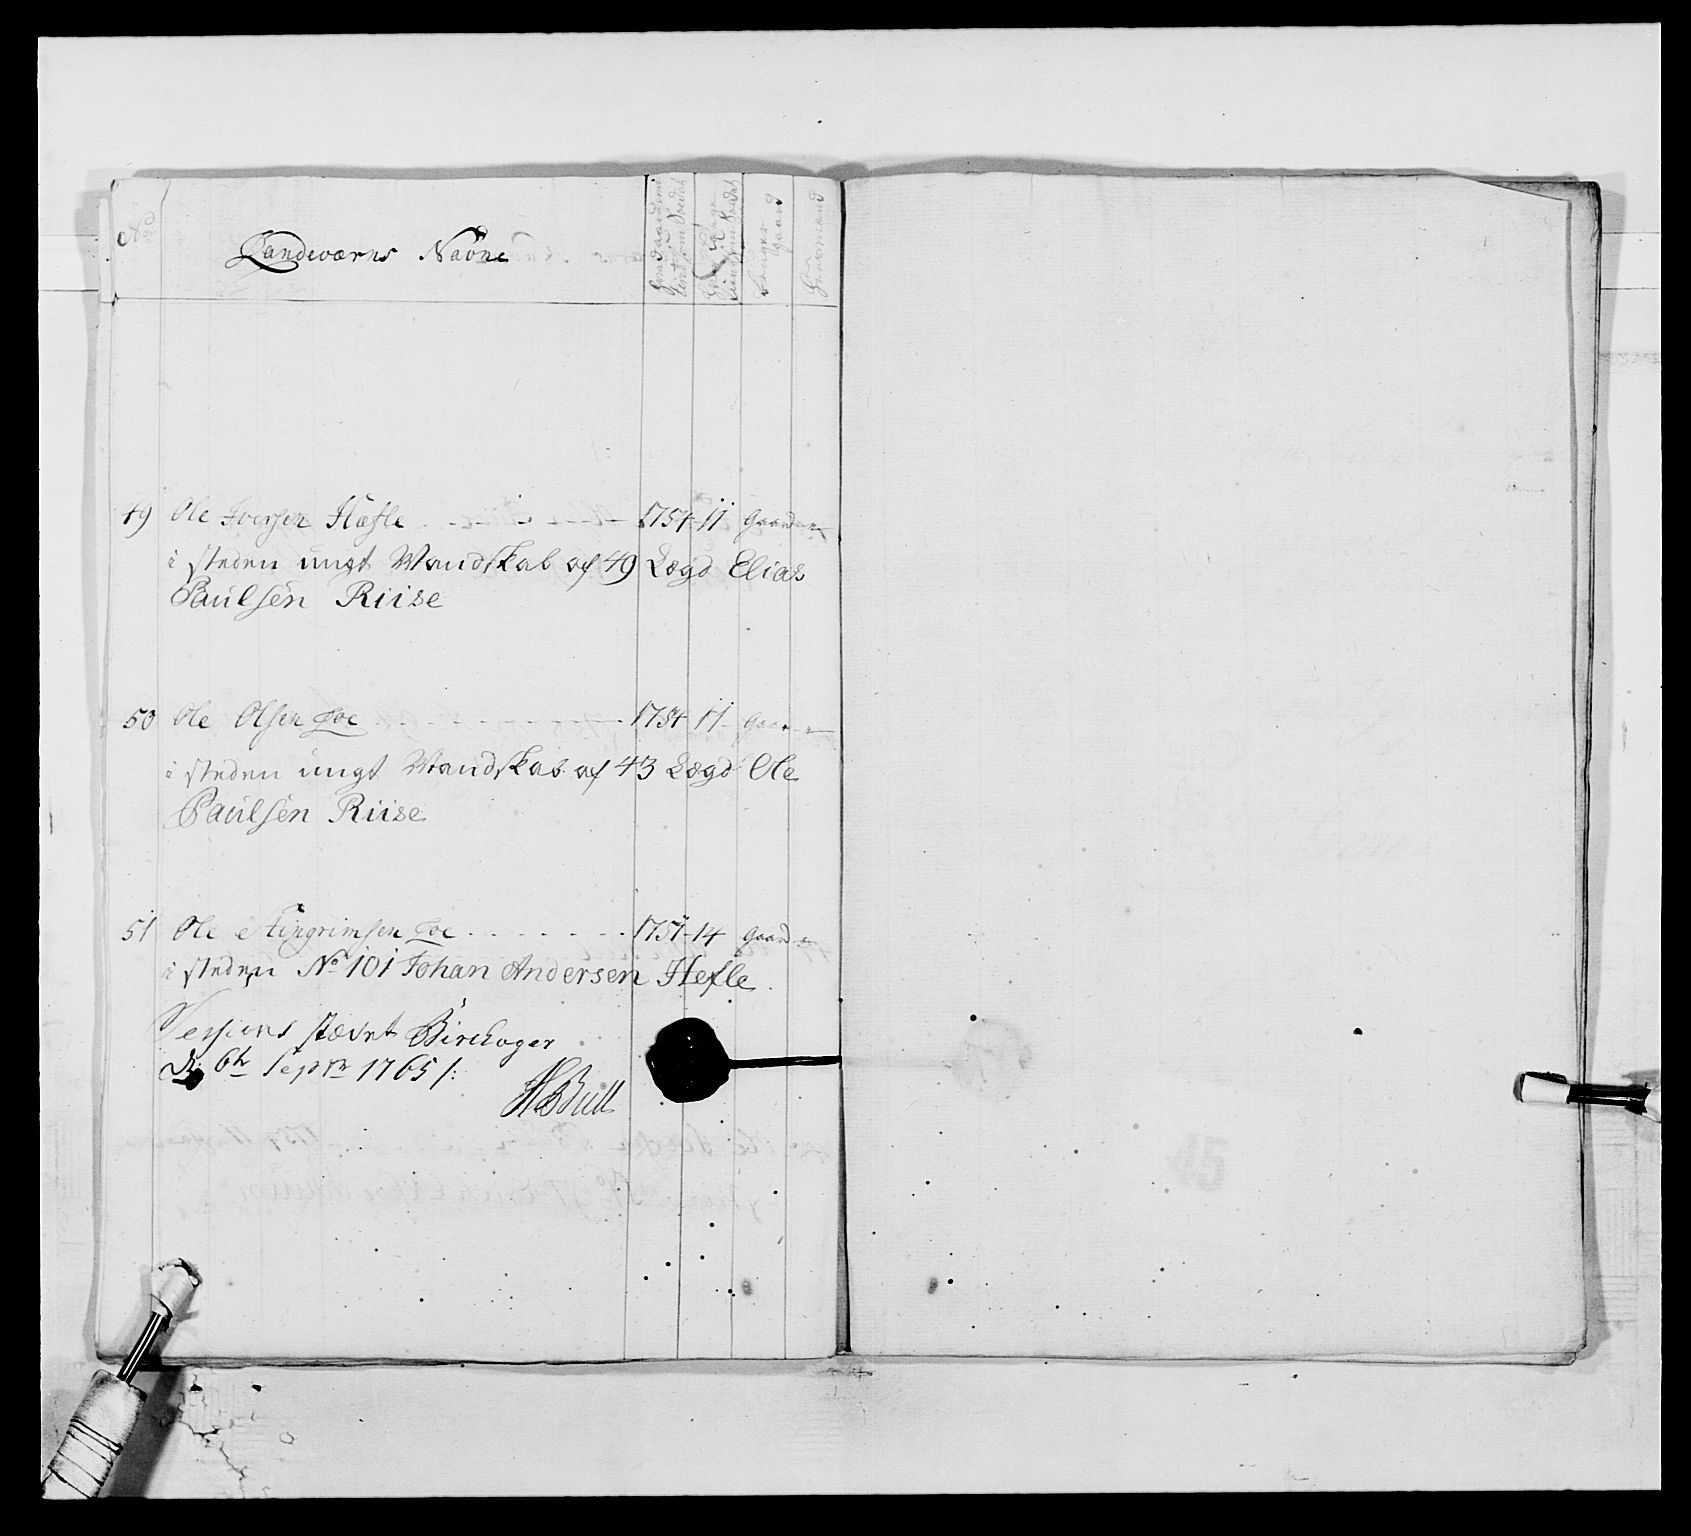 No
Landeværns Navne
49 Ole Iversen Hæfle 1754 11 gaard
i steden ungt Mandskab af 49 Lægd Elias
Paulsen Riise
50 Ole Olsen Loe 1754 11
i steden ungt Mandskab af 43 Lægd Ole
Paulsen Riise
51 Ole Stingrimsen Loe 1751 14 gaard
i steden No 101 Johan Andersen Hefle
Sessions stævnt Birckager
d: 6te Septr 1765 /:
HBull